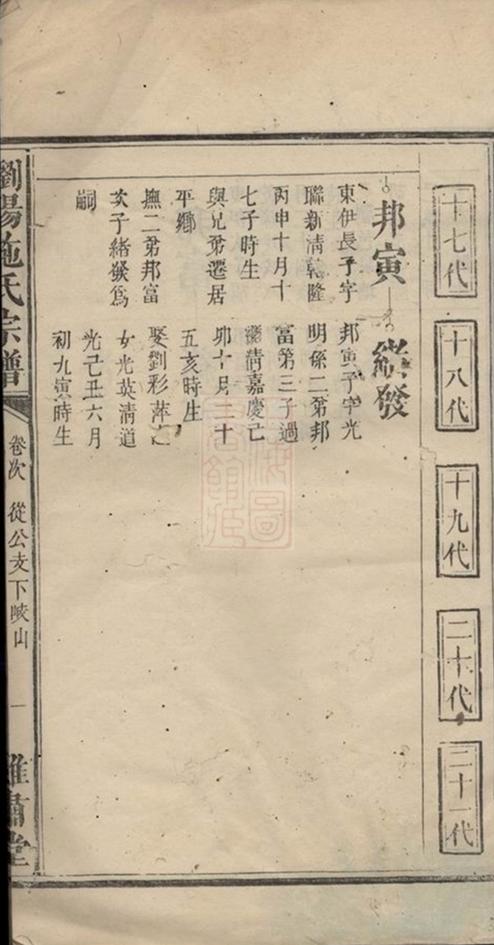 十七代
十八代
十九代
二十代
二十一代
邦寅
東伊長子字
聯新清乾隆
丙申十月十
七子時生
與兄弟遷居
平鄉
撫二弟邦富
次子緒發爲
嗣
緒發
邦寅子字光
明係二弟邦
富第三子過
清嘉慶己
卯十月二十
五亥時生
娶劉彩萍
女光英清道
光己丑六月
初九寅時生
瀏陽施氏宗譜
卷次 從公支下峽山
一
雍肅堂